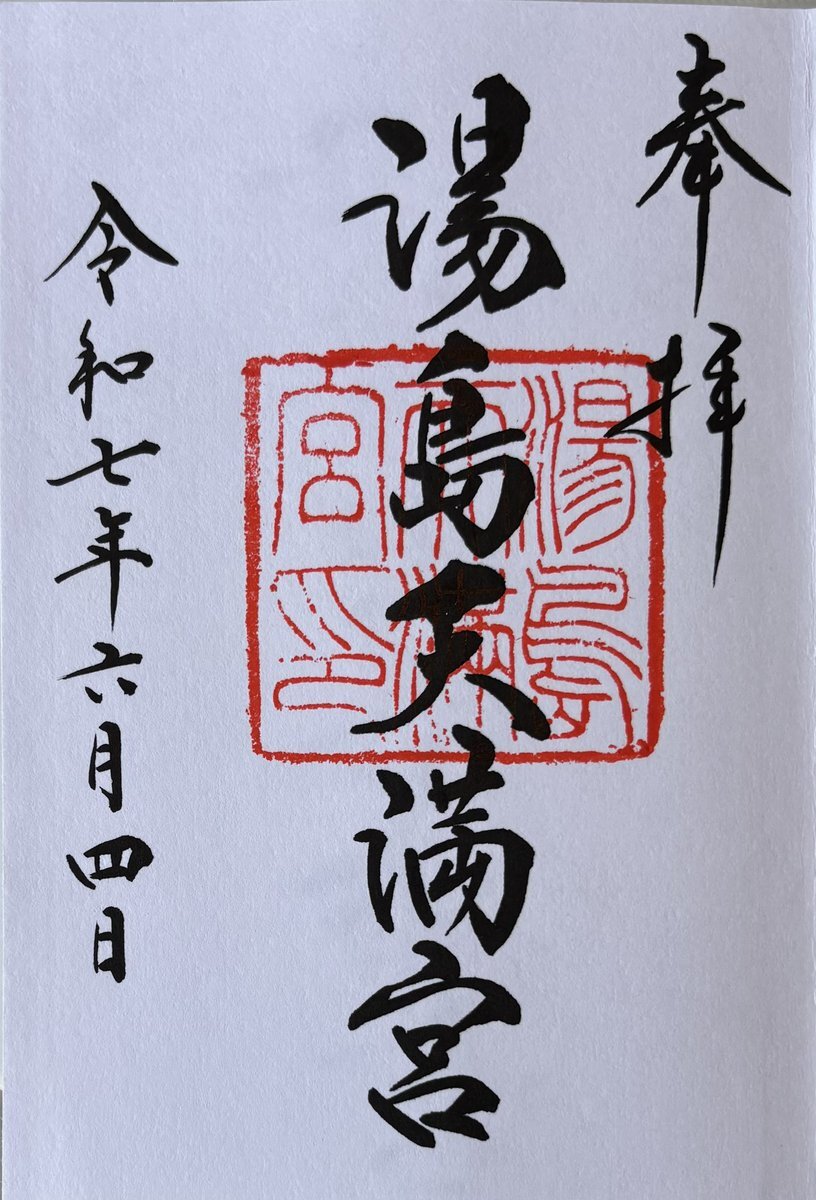 奉拝
湯島天満宮
湯島天満宮印
令和七年六月四日